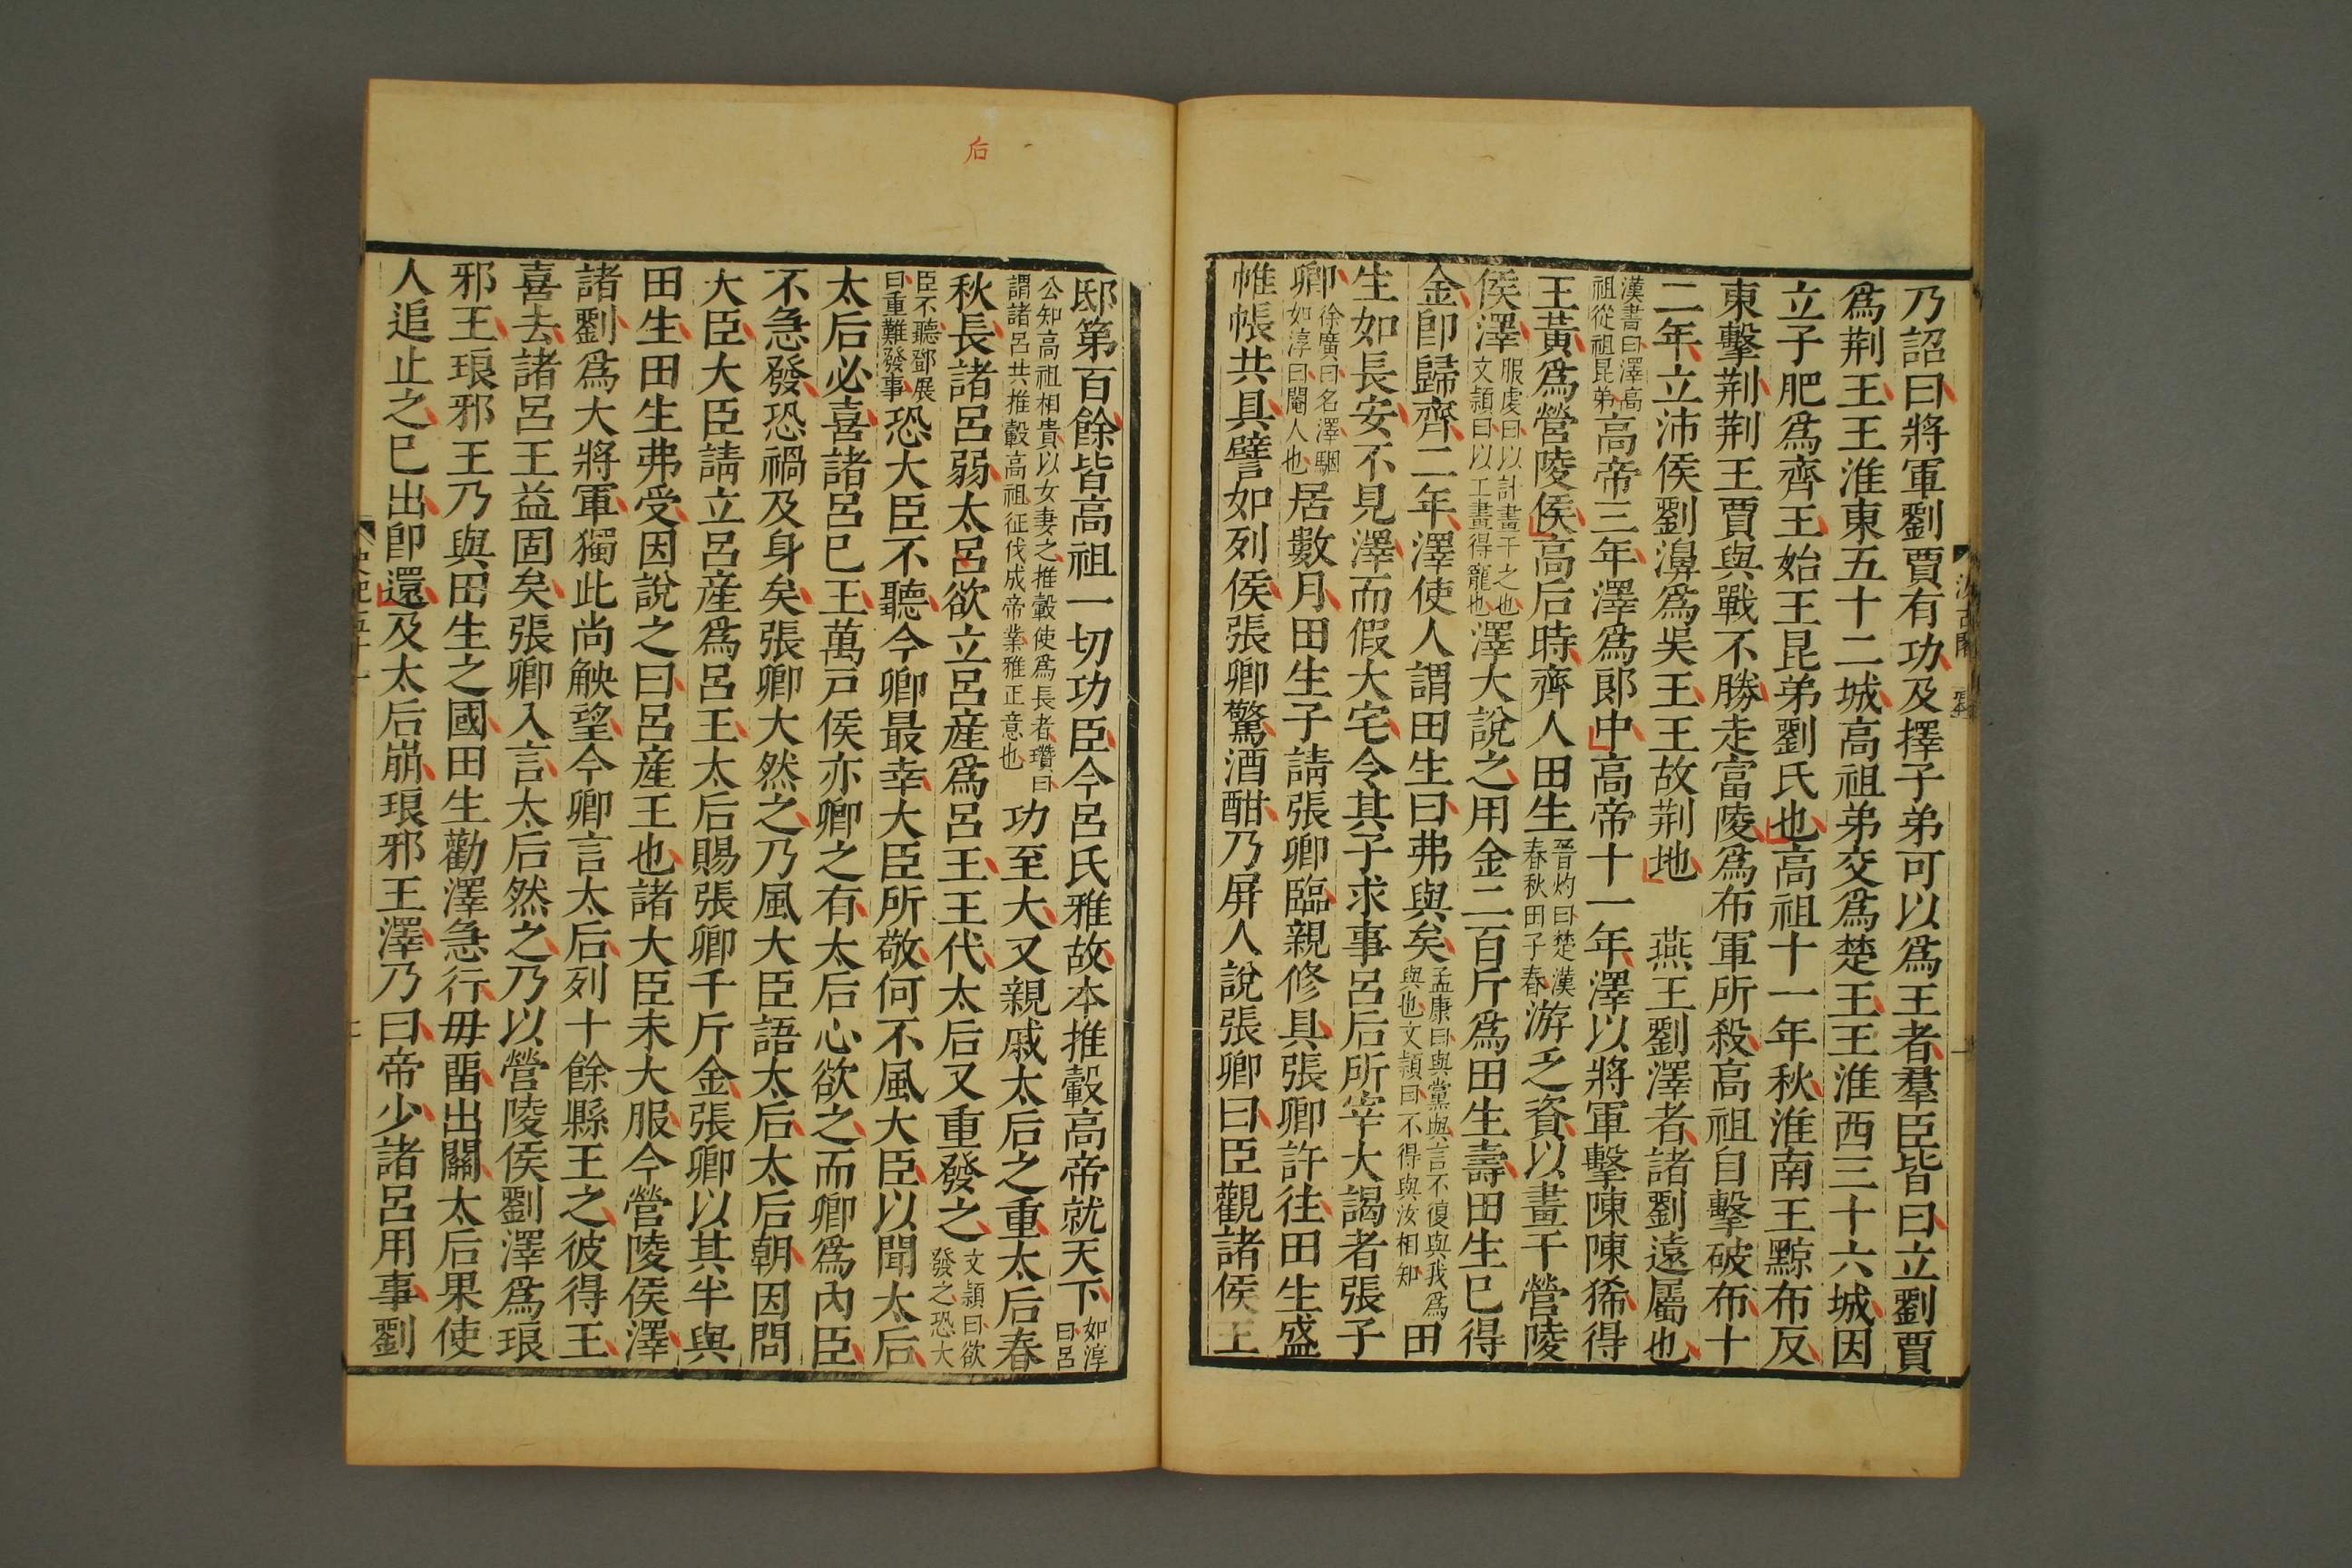 乃詔曰將軍劉賈有功及擇子弟可以爲王者羣臣皆曰立劉賈
爲荆王王淮東五十二城高祖弟交爲楚王王淮西三十六城因
立子肥爲齊王始王昆弟劉氏也高祖十一年秋淮南王黥布反
東擊荆荆王賈與戰不勝走富陵爲布軍所殺高祖自擊破布十
二年立沛侯劉濞爲吳王王故荆地　燕王劉澤者諸劉遠屬也
漢書曰澤高祖從祖昆弟高帝三年澤爲郎中高帝十一年澤以將軍擊陳陳豨得
王黃爲營陵侯高后時齊人田生晉灼曰楚漢春秋田子春游乏資以畫干營陵
侯澤服虔曰以計畫干之也文頴曰以工畫得寵也澤大說之用金二百斤爲田生壽田生巳得
金卽歸齊二年澤使人謂田生曰弗與矣孟康曰與黨與言不復與我爲與也文頴曰不得與汝相知田
生如長安不見澤而假大宅令其子求事呂后所宰大謁者張子
卿徐廣曰名澤駰如淳曰閹人也居數月田生子請張卿臨親修具張卿許往田生盛
帷帳共具譬如列侯張卿驚酒酣乃屏人說張卿曰臣觀諸侯王
邸第百餘皆高祖一切功臣今呂氏雅故本推轂高帝就天下如淳曰呂
公知高祖相貴以女妻之推轂使爲長者瓚曰謂諸呂共推轂高祖征伐成帝業雅正意也功至大又親戚太后之重太后春
秋長諸呂弱太呂欲立呂産爲呂王王代太后又重發之文頴曰欲發之恐大
臣不聽鄧展曰重難發事恐大臣不聽今卿最幸大臣所敬何不風大臣以聞太后
太后必喜諸呂巳王萬戸侯亦卿之有太后心欲之而卿爲內臣
不急發恐禍及身矣張卿大然之乃風大臣語太后太后朝因問
大臣大臣請立呂産爲呂王太后賜張卿千斤金張卿以其半與
田生田生弗受因說之曰呂産王也諸大臣未大服今營陵侯澤
諸劉爲大將軍獨此尚觖望今卿言太后列十餘縣王之彼得王
喜去諸呂王益固矣張卿入言太后然之乃以營陵侯劉澤爲琅
邪王琅邪王乃與田生之國田生勸澤急行毋畱出關太后果使
人追止之巳出卽還及太后崩琅邪王澤乃曰帝少諸呂用事劉
后